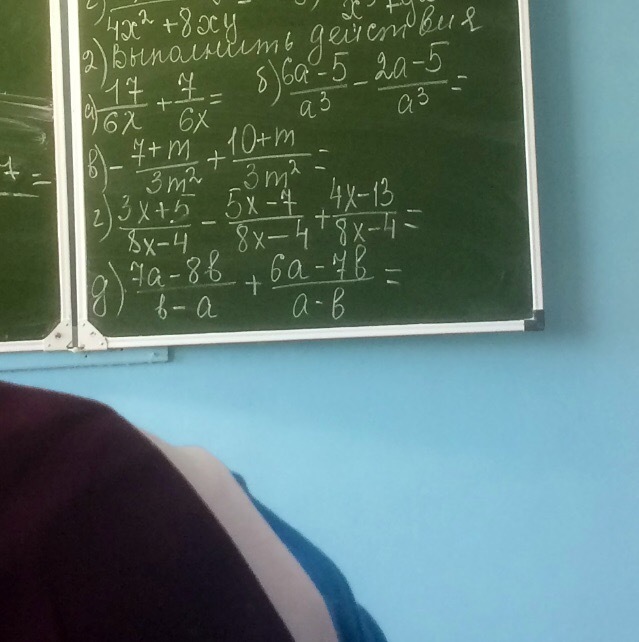 4x² + 8xy
2) Выполнить действия
а) 17/6x + 7/6x = б) 6a-5/a³ - 2a-5/a³ =
в) - 7+m/3m² + 10+m/3m² =
7 =
г) 3x+5/8x-4 - 5x-7/8x-4 + 4x-13/8x-4 =
д) 7a-8в/в-a + 6a-7в/a-в =